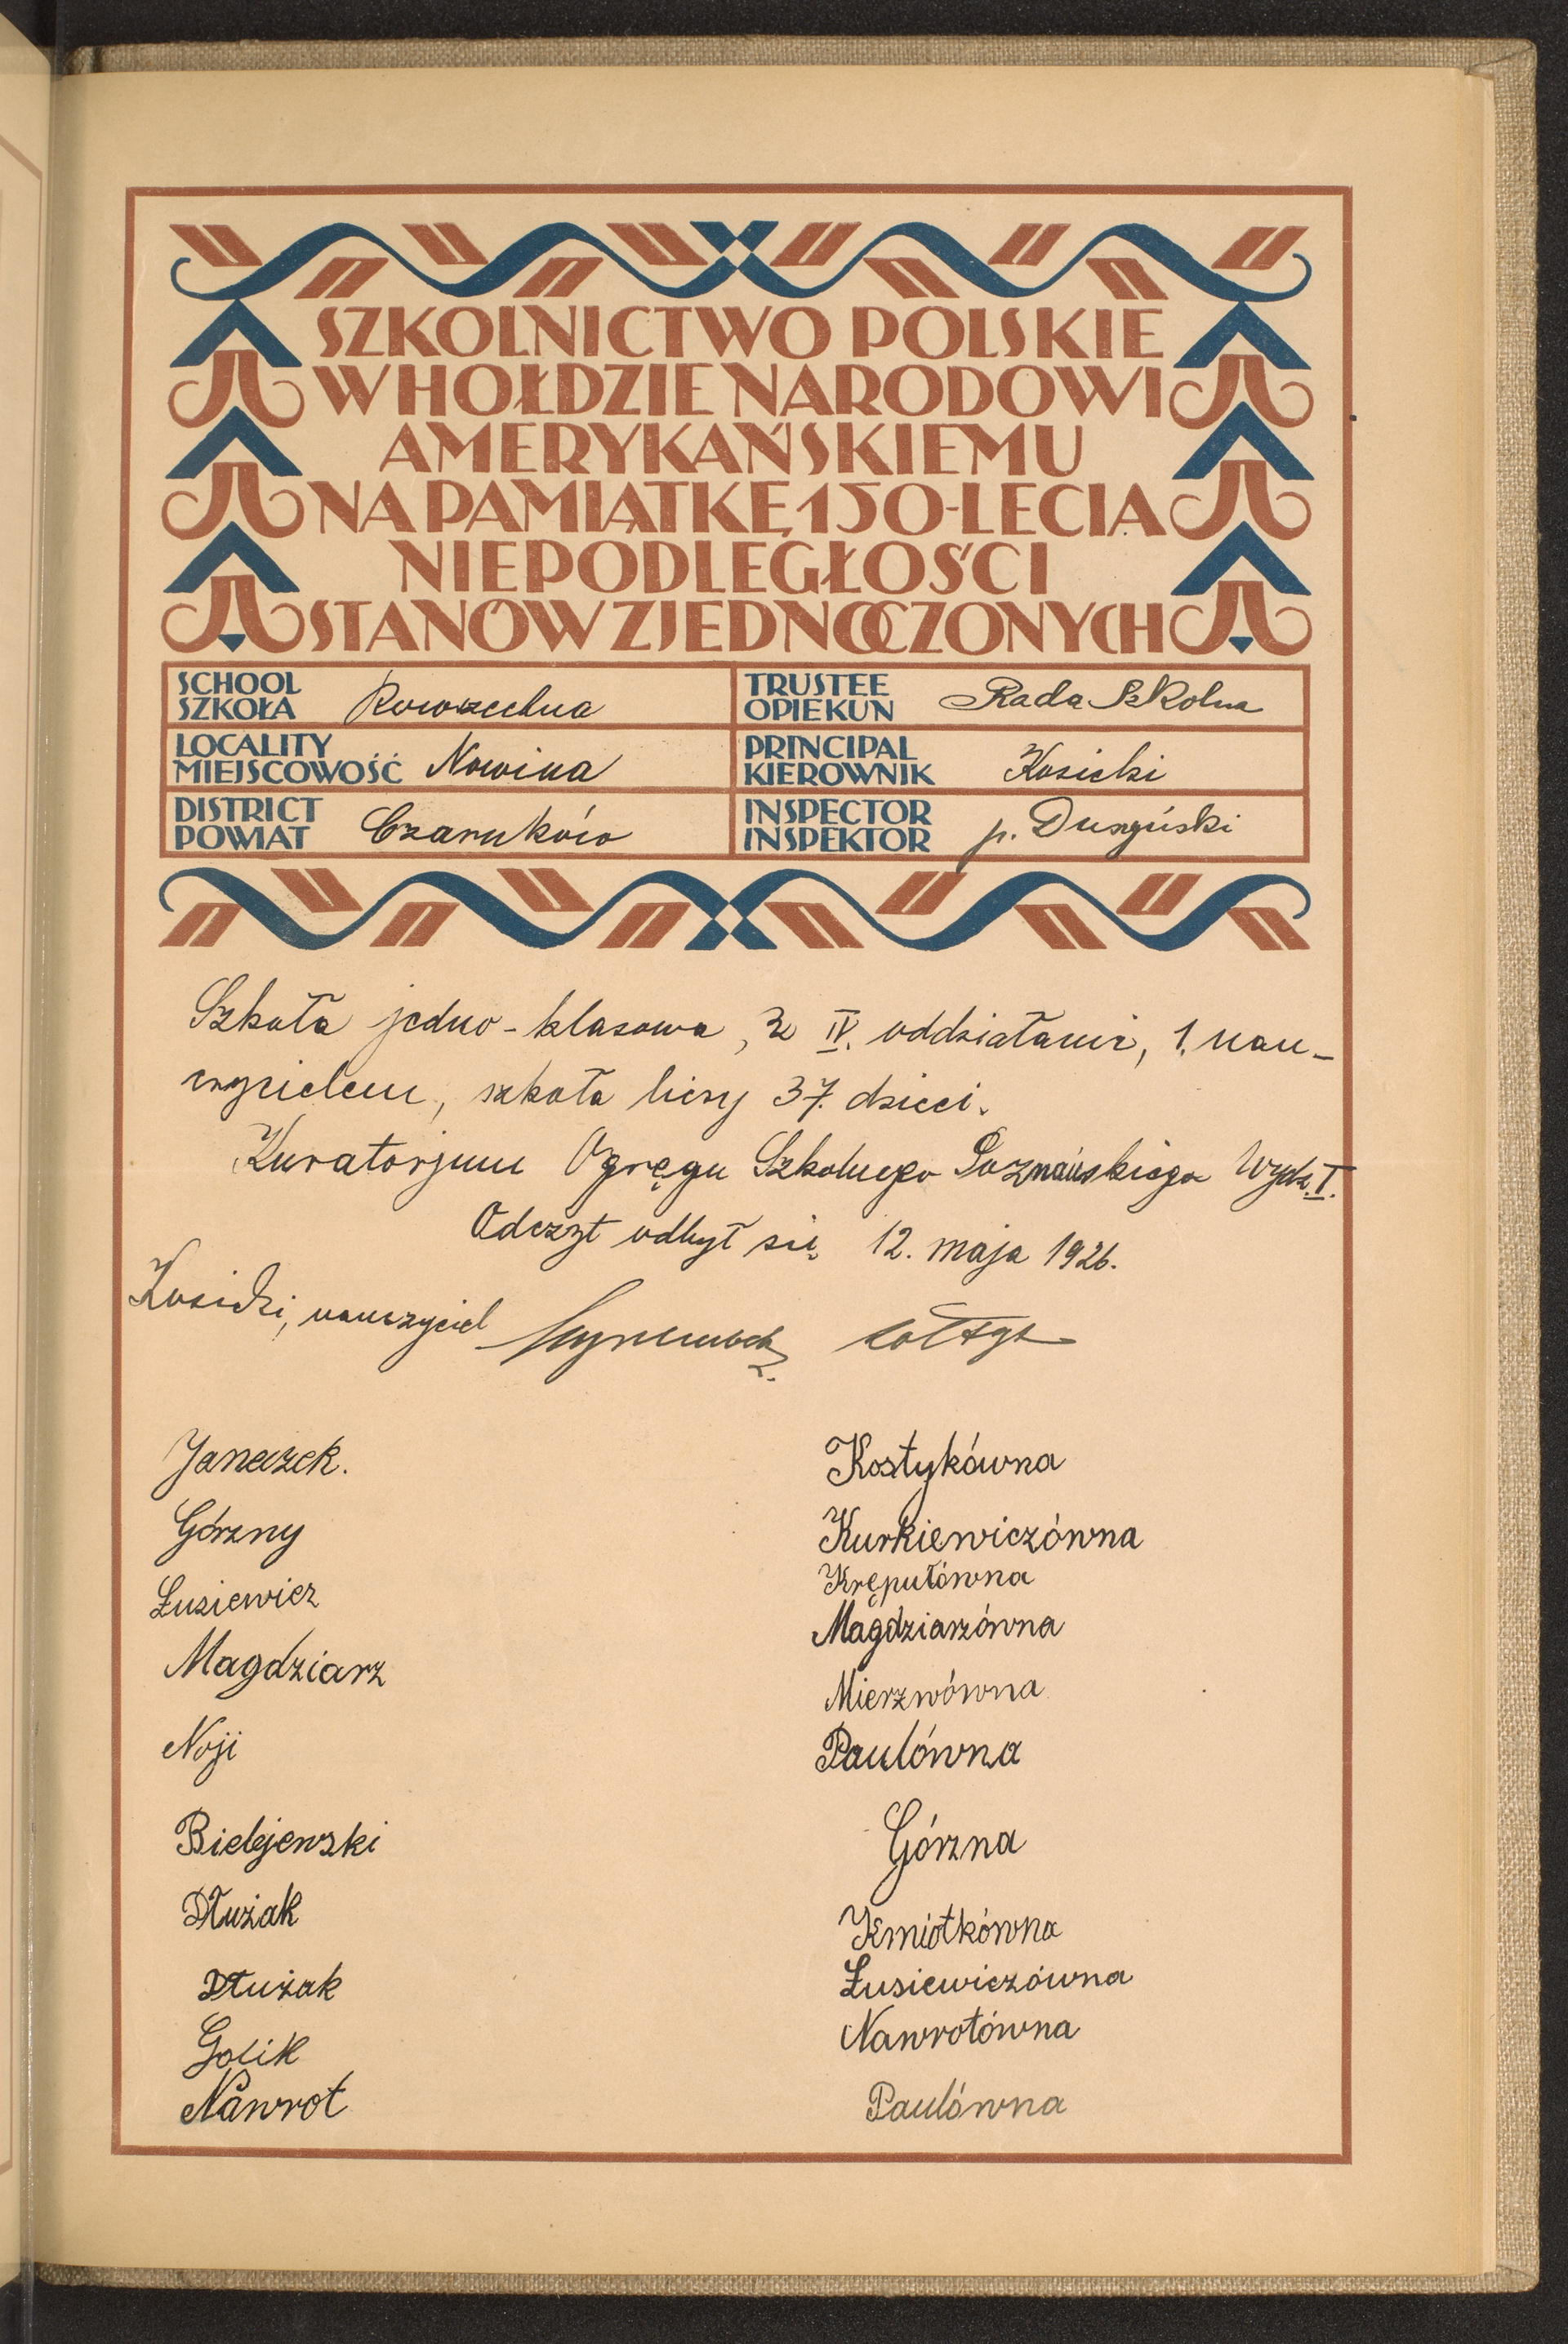 SZKOLNICTWO POLSKIE
W HOŁDZIE NARODOWI
AMERYKAŃSKIEMU
NA PAMIĄTKĘ 150-LECIA
NIEPODLEGŁOŚCI
STANÓW ZJEDNOCZONYCH
SCHOOL
SZKOŁA Powszechna
TRUSTEE
OPIEKUN Rada Szkolna
LOCALITY
MIEJSCOWOŚĆ Nowina
PRINCIPAL
KIEROWNIK Kosicki
DISTRICT
POWIAT Czarnków
INSPECTOR
INSPEKTOR p. Duszyński
Szkoła jedno-klasowa, z IV. oddziałami, 1. nau-
czycielem, szkoła liczy 37. dzieci.
Kuratorjum Ogręgu Szkolnego Poznańskiego Wydz. I.
Odczyt odbył się 12. maja 1926.
Kosicki, nauczyciel sołtys
Janeczek.
Górzny
Łusiewicz
Magdziarz
Noji
Bielejewski
Dłużak
Dłużak
Golik
Nawrot
Kostykówna
Kurkiewiczówna
Krępułówna
Magdziarzówna
Mierzwówna
Paulówna
Górzna
Kmiotkówna
Łusiewiczówna
Nawrotówna
Paulówna